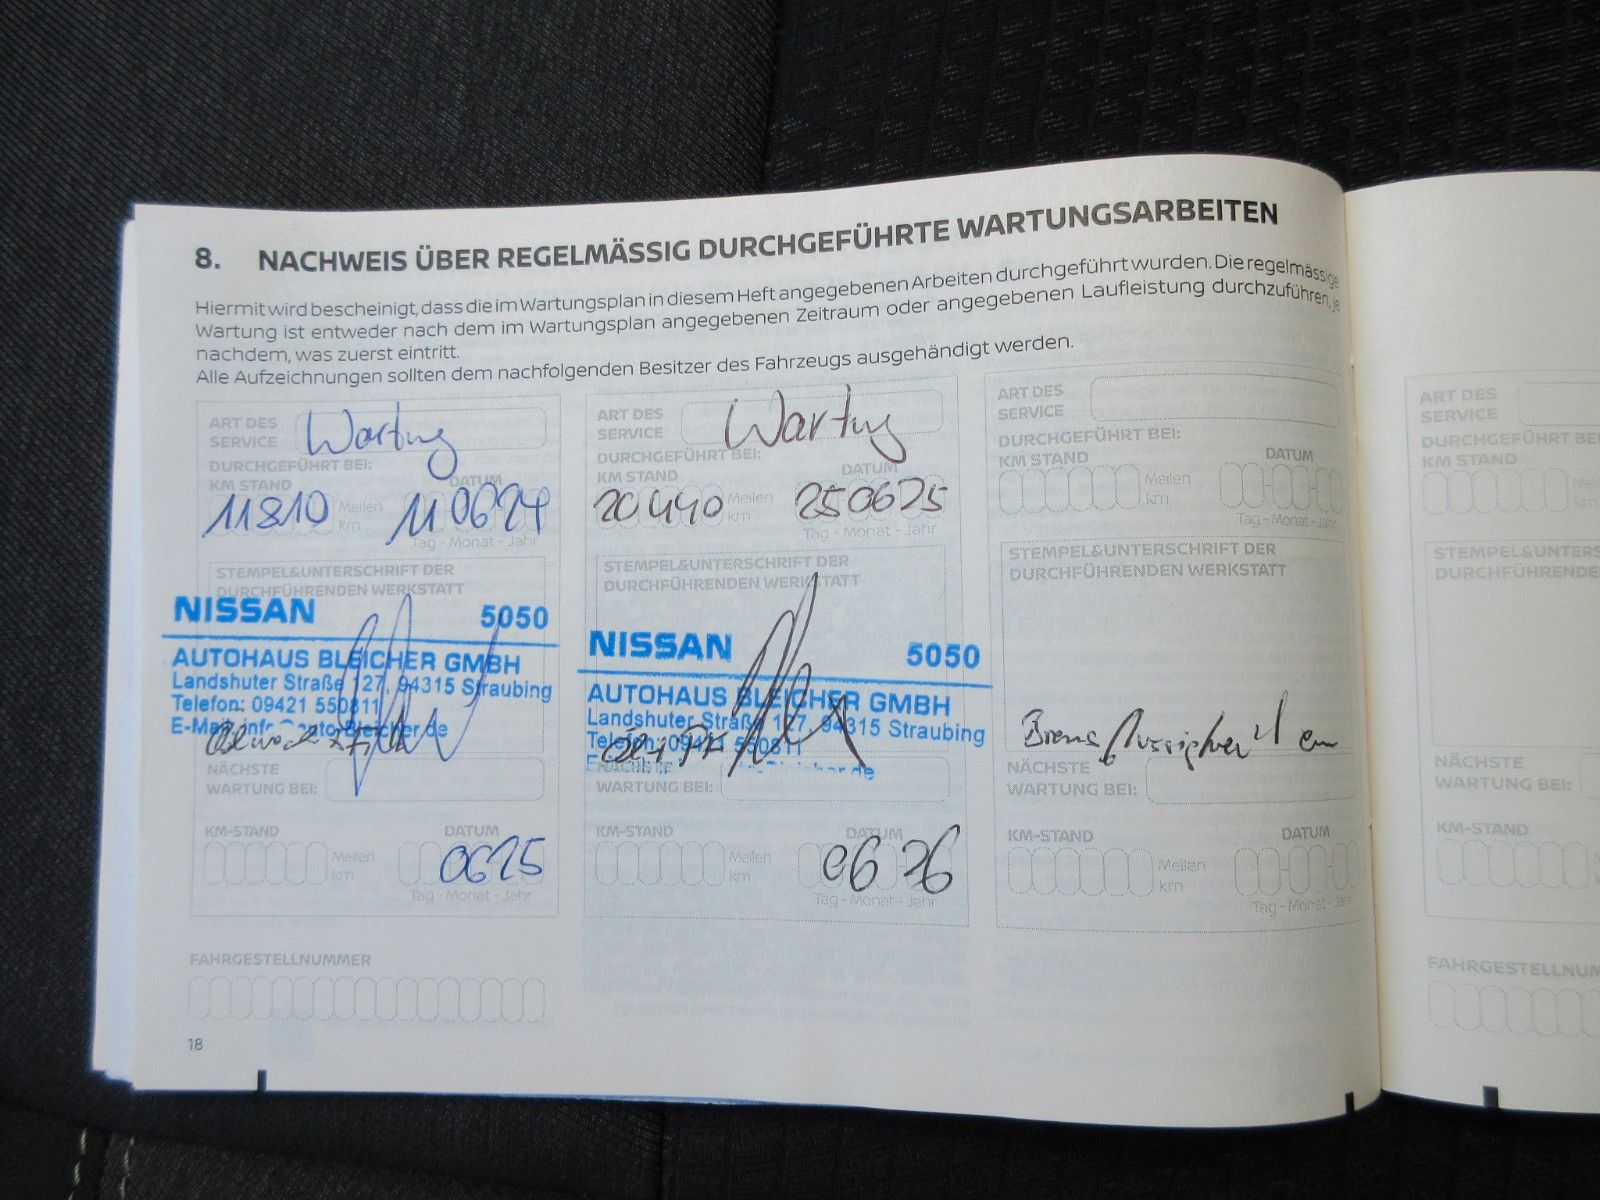 8. NACHWEIS ÜBER REGELMÄSSIG DURCHGEFÜHRTE WARTUNGSARBEITEN
Hiermit wird bescheinigt, dass die im Wartungsplan in diesem Heft angegebenen Arbeiten durchgeführt wurden. Die regelmässige
Wartung ist entweder nach dem im Wartungsplan angegebenen Zeitraum oder angegebenen Laufleistung durchzuführen, je
nachdem, was zuerst eintritt.
Alle Aufzeichnungen sollten dem nachfolgenden Besitzer des Fahrzeugs ausgehändigt werden.
ART DES
SERVICE
Wartung
DURCHGEFÜHRT BEI:
KM STAND
DATUM
11810
Meilen
km
110624
Tag - Monat - Jahr
STEMPEL&UNTERSCHRIFT DER
DURCHFÜHRENDEN WERKSTATT
NISSAN 5050
AUTOHAUS BLEICHER GMBH
Landshuter Straße 127, 94315 Straubing
Telefon: 09421 550811
NÄCHSTE
WARTUNG BEI:
KM-STAND
DATUM
Meilen
km
0625
Tag - Monat - Jahr
FAHRGESTELLNUMMER
18
ART DES
SERVICE
Wartung
DURCHGEFÜHRT BEI:
KM STAND
DATUM
20440
Meilen
km
250625
Tag - Monat - Jahr
STEMPEL&UNTERSCHRIFT DER
DURCHFÜHRENDEN WERKSTATT
NISSAN 5050
AUTOHAUS BLEICHER GMBH
Landshuter Straße 127, 94315 Straubing
Telefon: 09421 550811
NÄCHSTE
WARTUNG BEI:
KM-STAND
DATUM
Meilen
km
0626
Tag - Monat - Jahr
ART DES
SERVICE
DURCHGEFÜHRT BEI:
KM STAND
DATUM
Meilen
km
Tag - Monat - Jahr
STEMPEL&UNTERSCHRIFT DER
DURCHFÜHRENDEN WERKSTATT
NÄCHSTE
WARTUNG BEI:
KM-STAND
DATUM
Meilen
km
Tag - Monat - Jahr
ART DES
SERVICE
DURCHGEFÜHRT BEI
KM STAND
STEMPEL&UNTERS
DURCHFÜHRENDE
NÄCHSTE
WARTUNG BEI:
KM-STAND
FAHRGESTELLNUM